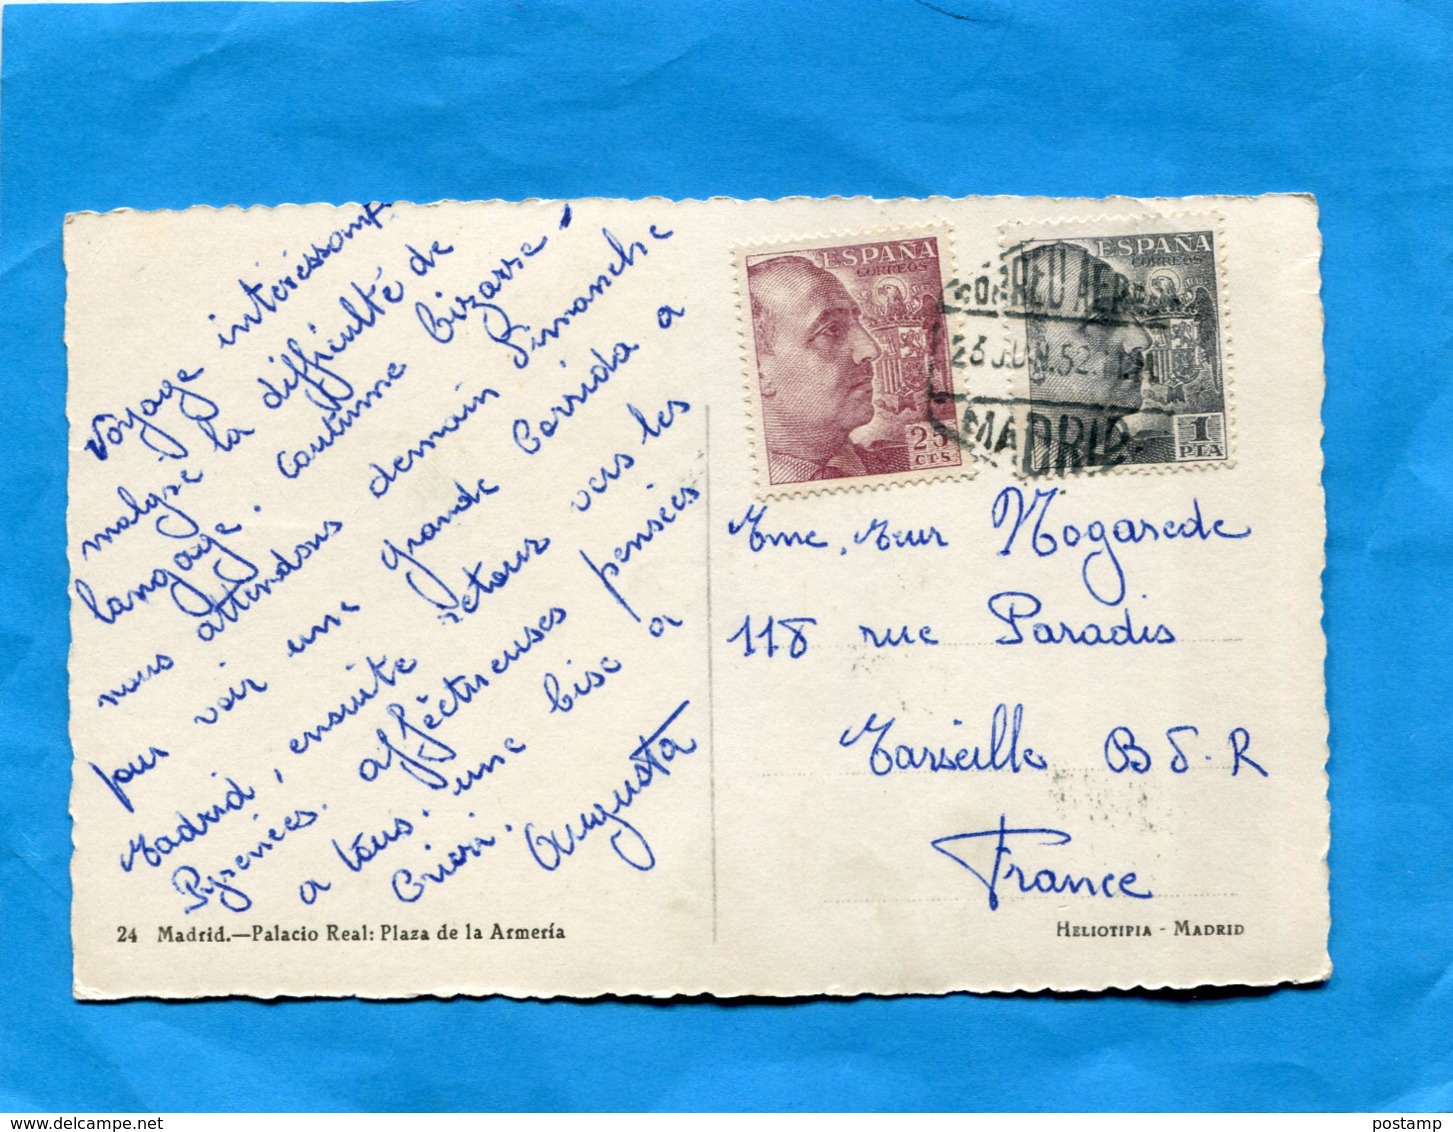 Vôyage intéréssant
malgré la difficulté de
langage. Coutume bizarre
nous attendons demain Dimanche
pour voir une grande Corrida a
Madrid, ensuite retour vers les
Pyrenées. affèctueuses pensées
a tous. une bise a
Augusta
ESPAÑA
CORREOS
25
CTS
ESPAÑA
CORREOS
1
PTA
CORREO AEREO
MADRID
Mme, Meur Nogarede
118 rue Paradis
Marseille B d. R
France
24 Madrid.—Palacio Real: Plaza de la Armería
HELIOTIPIA - MADRID
Postamp